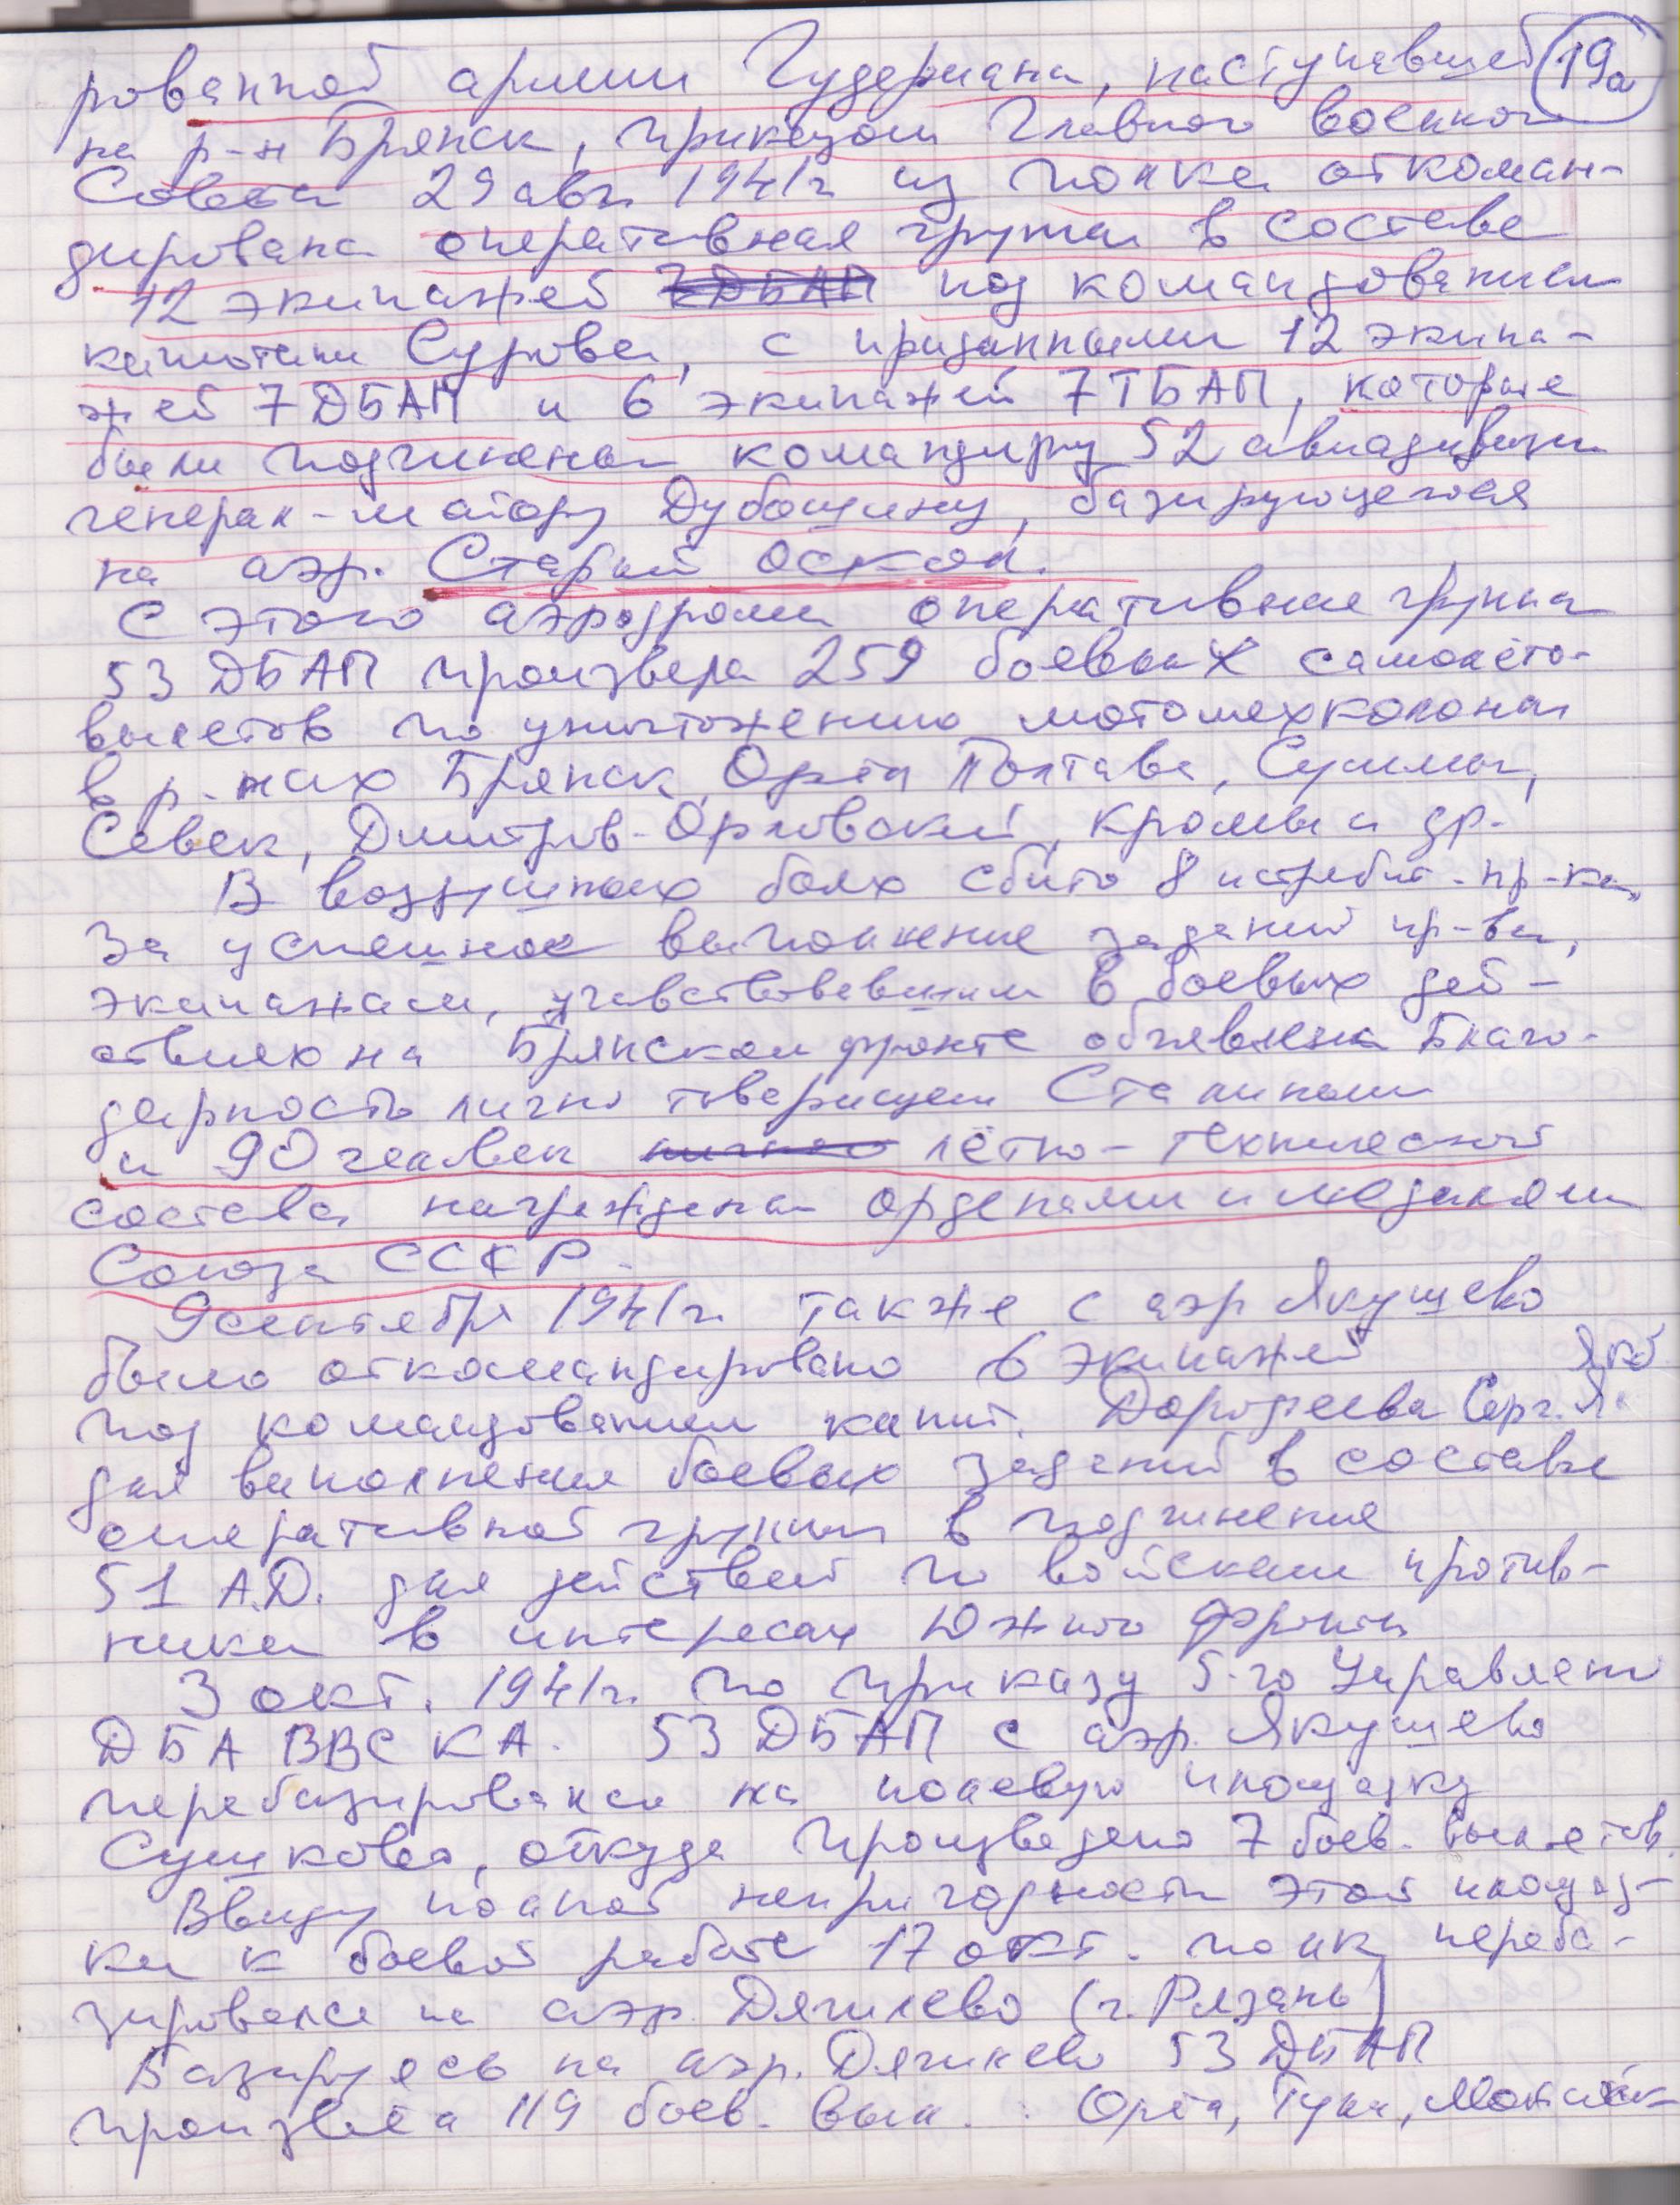 19а
рованной армии Гудериана, наступавшей
на р-н Брянск, приказом Главного военного
Совета 29 авг. 1941г из полка откоман-
дирована оперативная группа в составе
12 экипажей 7ДБАП под командованием
капитана Сурова, с приданными 12 экипа-
жей 7 ДБАП и 6 экипажей 7ТБАП, которые
были подчинены командиру 52 авиадивизии
генерал-майору Дубошину, базирующегося
на аэр. Старый Оскол.
С этого аэродрома оперативная группа
53 ДБАП произвела 259 боевых самолёто-
вылетов по уничтожению мотомехколонн
в р-нах Брянск, Орёл Полтава, Сумы,
Севск, Дмитров-Орловский, Кромы и др.
В воздушных боях сбито 8 истребит. пр-ка,
За успешное выполнение заданий пр-ва,
экипажам, участвовавшим в боевых дей-
ствиях на Брянском фронте объявлена Благо-
дарность лично товарищем Сталиным
и 90 человек лично лётно-технический
состава награждены орденами и медалями
Союза ССР.
9 сентября 1941г. также с аэр Якушево
было откомандировано 6 экипажей
под командованием капит. Дорофеева Серг. Як
для выполнения боевых заданий в составе
оперативной группы в подчинение
51 А.Д. для действий по войскам против-
ника в интересах Южного фронта
3 окт. 1941г. по приказу 5-го Управлени
ДБА ВВС КА. 53 ДБАП с аэр. Якушево
перебазировался на полевую площадку
Сушково, откуда произведено 7 боев. вылетов.
Ввиду полной непригодности этой площад-
ки к боевой работе 17 окт. полк переба-
зировался на аэр. Дягилево (г. Рязань)
Базируясь на аэр. Дягилево 53 ДБАП
произвёл 119 боев. выл. : Орёл, Тула,